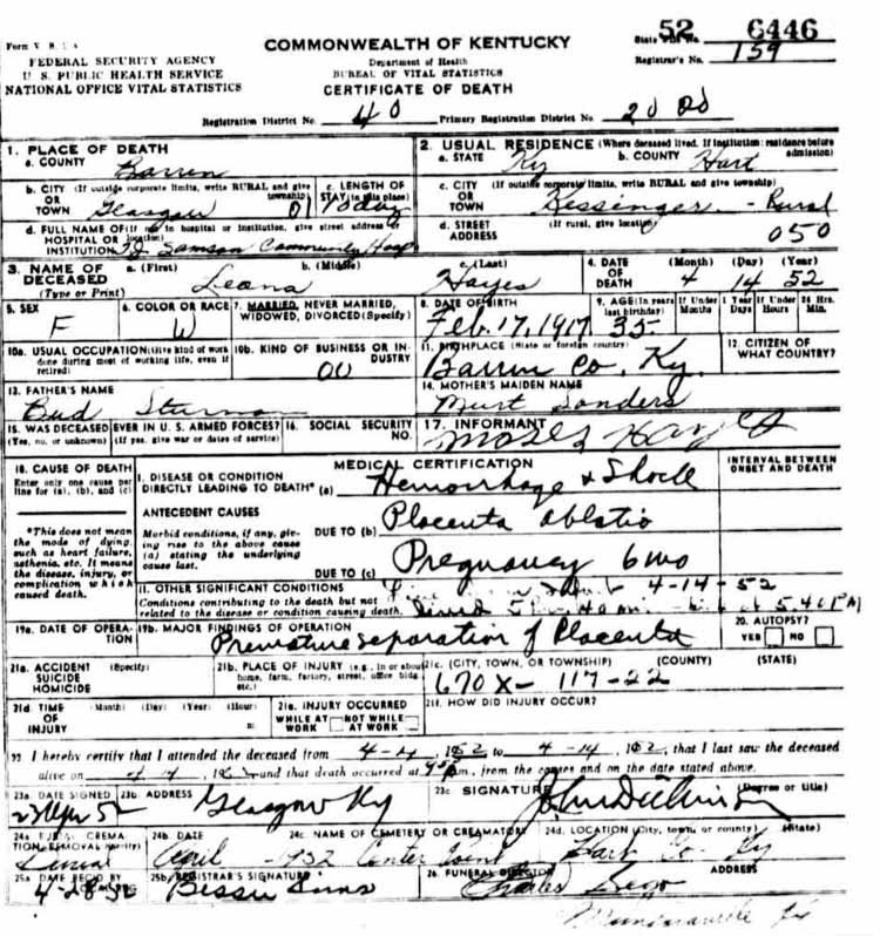 52 6446
Form V. S. 1 A
COMMONWEALTH OF KENTUCKY
State File No.
FEDERAL SECURITY AGENCY
Department of Health
Registrar's No. 159
U S. PUBLIC HEALTH SERVICE
BUREAU OF VITAL STATISTICS
NATIONAL OFFICE VITAL STATISTICS
CERTIFICATE OF DEATH
Registration District No. 40 Primary Registration District No.
1. PLACE OF DEATH
a. COUNTY Barren
2. USUAL RESIDENCE (Where deceased lived. If institution: residence before admission)
a. STATE Ky b. COUNTY Hart
b. CITY (If outside corporate limits, write RURAL and give township)
OR
TOWN Glasgow
c. LENGTH OF STAY (in this place)
c. CITY (If outside corporate limits, write RURAL and give township)
OR
TOWN Kessinger - Rural
d. FULL NAME OF (If not in hospital or institution, give street address or location)
HOSPITAL OR
INSTITUTION Samson Community Hosp
d. STREET ADDRESS (If rural, give location)
050
3. NAME OF DECEASED
(Type or Print)
a. (First) b. (Middle) c. (Last)
Leona Hayes
4. DATE OF DEATH (Month) (Day) (Year)
4 14 52
5. SEX
F
6. COLOR OR RACE
W
7. MARRIED, NEVER MARRIED, WIDOWED, DIVORCED (Specify)
8. DATE OF BIRTH
Feb. 17, 1917
9. AGE (In years last birthday)
35
If Under 1 Year Months Days
If Under 24 Hrs. Hours Min.
10a. USUAL OCCUPATION (Give kind of work done during most of working life, even if retired)
10b. KIND OF BUSINESS OR INDUSTRY
00
11. BIRTHPLACE (State or foreign country)
Barren Co. Ky.
12. CITIZEN OF WHAT COUNTRY?
13. FATHER'S NAME
Bud
14. MOTHER'S MAIDEN NAME
Murt Sanders
15. WAS DECEASED EVER IN U. S. ARMED FORCES?
(Yes, no, or unknown) (If yes, give war or dates of service)
16. SOCIAL SECURITY NO.
17. INFORMANT
Moses Hayes
18. CAUSE OF DEATH
Enter only one cause per line for (a), (b), and (c)
MEDICAL CERTIFICATION
INTERVAL BETWEEN ONSET AND DEATH
I. DISEASE OR CONDITION
DIRECTLY LEADING TO DEATH* (a) Hemorrhage & Shock
ANTECEDENT CAUSES
*This does not mean the mode of dying, such as heart failure, asthenia, etc. It means the disease, injury, or complication which caused death.
Morbid conditions, if any, giving rise to the above cause (a) stating the underlying cause last.
DUE TO (b) Placenta Ablatio
DUE TO (c) Pregnancy 6 mo
II. OTHER SIGNIFICANT CONDITIONS
Conditions contributing to the death but not related to the disease or condition causing death.
4-14-52
5:40 PM
19a. DATE OF OPERATION
19b. MAJOR FINDINGS OF OPERATION
Premature separation of Placenta
20. AUTOPSY?
YES NO
21a. ACCIDENT SUICIDE HOMICIDE (Specify)
21b. PLACE OF INJURY (e.g., in or about home, farm, factory, street, office bldg. etc.)
21c. (CITY, TOWN, OR TOWNSHIP) (COUNTY) (STATE)
670X- 117-22
21d. TIME OF INJURY (Month) (Day) (Year) (Hour) m
21e. INJURY OCCURRED
WHILE AT WORK NOT WHILE AT WORK
21f. HOW DID INJURY OCCUR?
22 I hereby certify that I attended the deceased from 1952 to 4-14, 1952, that I last saw the deceased
alive on and that death occurred at m., from the causes and on the date stated above.
23a DATE SIGNED
23 Apr 52
23b ADDRESS
Glasgow Ky
23c SIGNATURE (Degree or title)
John Dickinson
24a BURIAL, CREMATION, REMOVAL (Specify)
Burial
24b. DATE
April 1952
24c NAME OF CEMETERY OR CREMATORY
Center Point
24d. LOCATION (City, town, or county) (State)
Hart Co. Ky
25a DATE REC'D BY LOCAL REG.
4-28-52
25b REGISTRAR'S SIGNATURE
Bessie
26 FUNERAL DIRECTOR ADDRESS
Charles Sego
Munfordville Ky